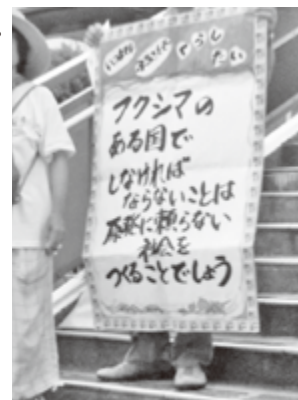 くらし
たい
フクシマの
ある国で
しなければ
ならないことは
原発に頼らない
社会を
つくることでしょう